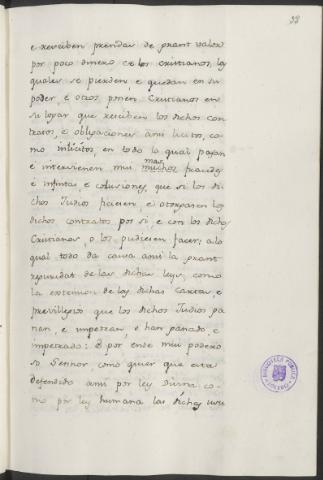 33
e resciben prendas de grant valor
por poco dinero de los cristianos, los
quales se pierden, e quedan en su
poder, e otros ponen Cristianos en
su logar que resciben los dichos con
tratos, e obligaciones asi licitos, co-
mo inlicitos, en todo lo qual pasan
e intervienen mui mas
muchos fraudes
e infintas e colusiones, que si los di
chos Judios ficiesen e otorgasen los
dichos contratos por si, e con los dichos
Cristianos o los pudiesen facer, a lo
qual todo da causa asi la grant
reguridat de las dichas leys, como
la extension de las dichas cartas, e
previllegios que los dichos Judios ga
nan, e impetran e han ganado, e
impetrado: E por ende mui podero
so Sennor, como quier que esta
defendido asi por ley divina co-
mo por ley humana las dichas usu
BIBLIOTECA PUBLICA
TOLEDO